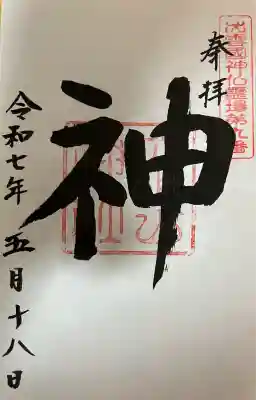 奉拝
出雲國神仏霊場第九番
神
令和七年五月十八日